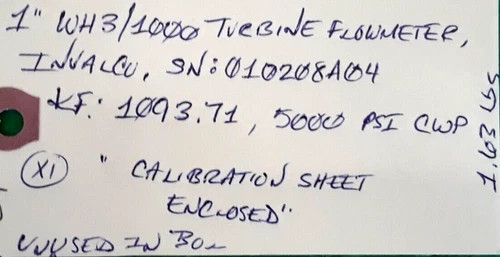 1" WH3/1000 TURBINE FLOWMETER,
INVALCO, SN:010208A04
KF: 1093.71, 5000 PSI CWP
X1 "CALIBRATION SHEET
ENCLOSED"
UNUSED IN BOX
1.63 LBS